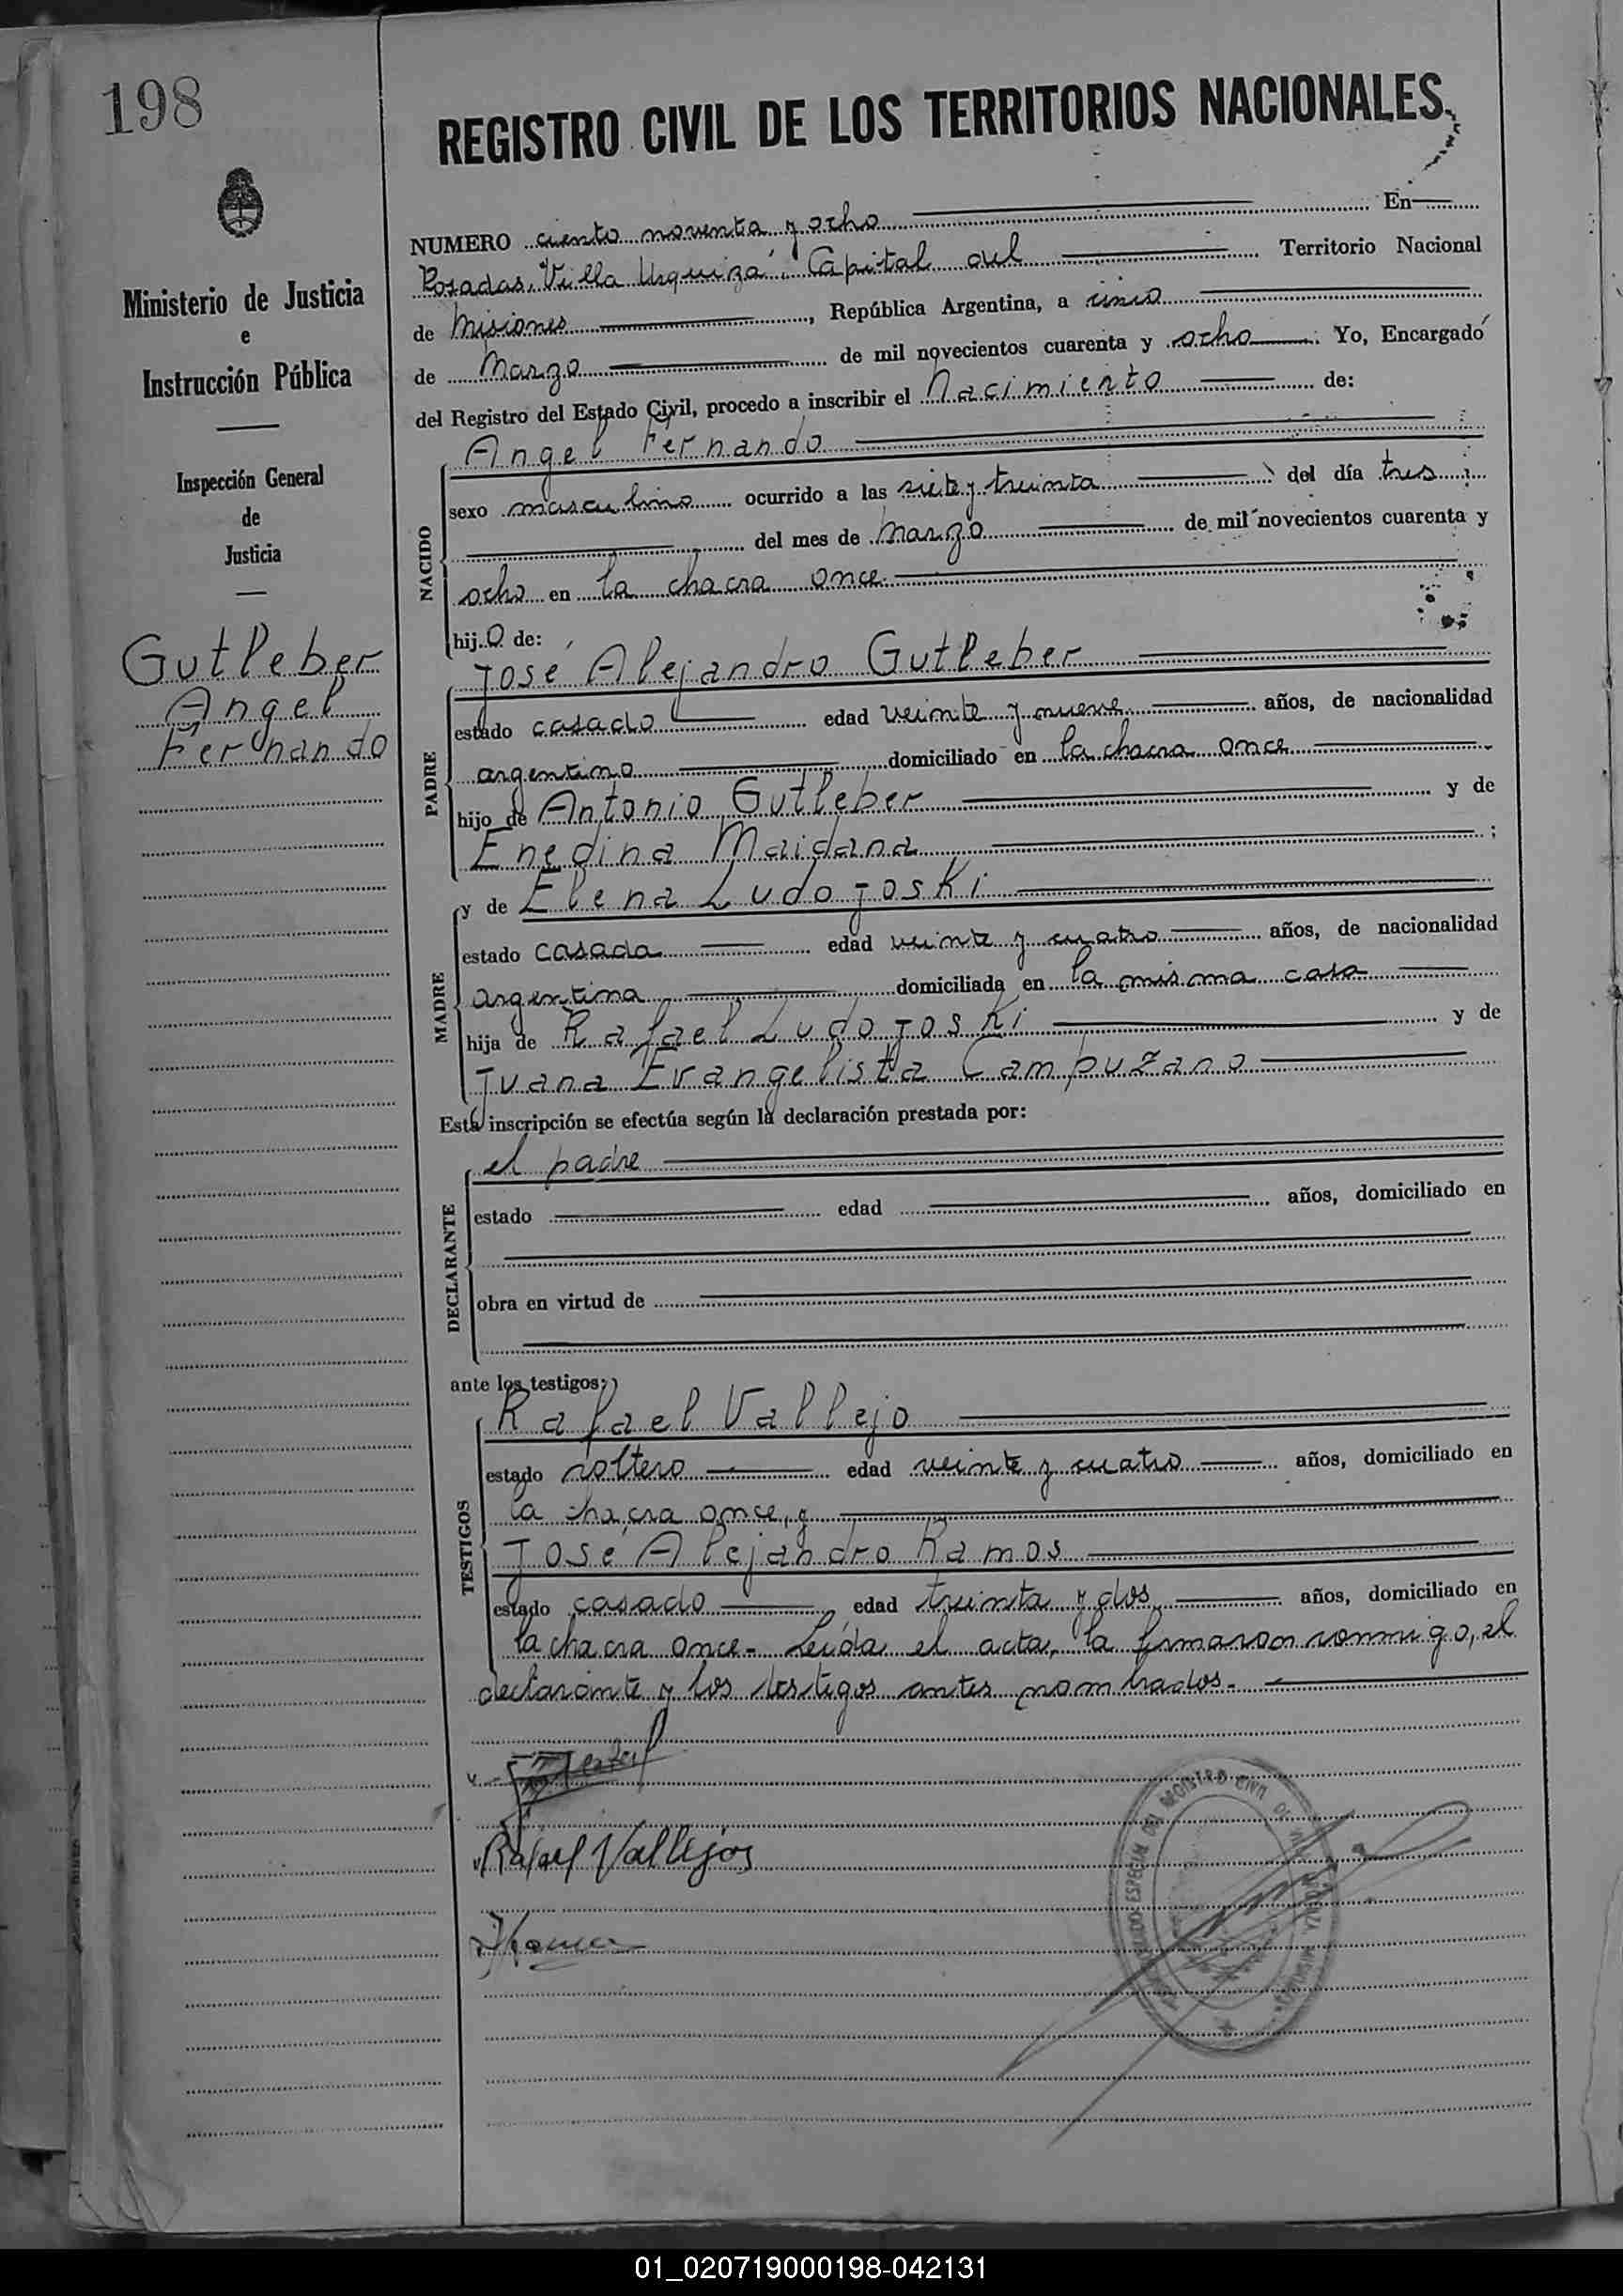 198
REGISTRO CIVIL DE LOS TERRITORIOS NACIONALES
Ministerio de Justicia
e
Instrucción Pública
Inspección General
de
Justicia
Gutleber
Angel
Fernando
NUMERO ciento noventa y ocho En
Posadas, "Villa Urquiza", Capital del Territorio Nacional
de Misiones, República Argentina, a cinco
de Marzo de mil novecientos cuarenta y ocho. Yo, Encargado
del Registro del Estado Civil, procedo a inscribir el Nacimiento de:
NACIDO
Angel Fernando
sexo masculino ocurrido a las siete y treinta del día tres
del mes de Marzo de mil novecientos cuarenta y
ocho en la chacra once
hijo de:
PADRE
José Alejandro Gutleber
estado casado edad veinte y nueve años, de nacionalidad
argentino domiciliado en la chacra once
hijo de Antonio Gutleber y de
Enedina Maidana ;
MADRE
y de Elena Ludojoski
estado casada edad veinte y cuatro años, de nacionalidad
argentina domiciliada en la misma casa
hija de Rafael Ludojoski y de
Juana Evangelista Campuzano
Esta inscripción se efectúa según la declaración prestada por:
DECLARANTE
el padre
estado edad años, domiciliado en
obra en virtud de
ante los testigos:
TESTIGOS
Rafael Vallejo
estado soltero edad veinte y cuatro años, domiciliado en
la chacra once, y
José Alejandro Ramos
estado casado edad treinta y dos años, domiciliado en
la chacra once.- Leída el acta, la firmaron conmigo, el
declarante y los testigos antes nombrados.-
Rafael Vallejos
REGISTRO CIVIL DE
01_020719000198-042131